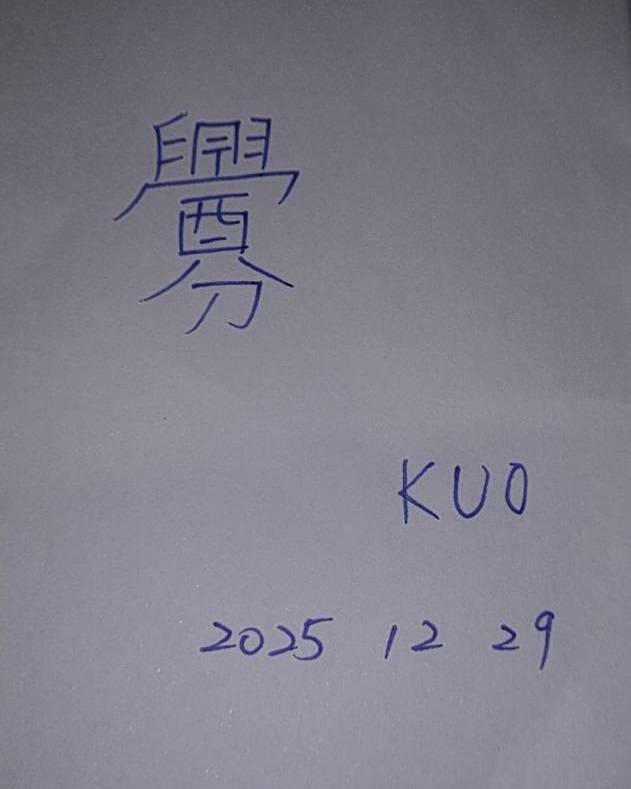 釁
KUO
2025 12 29